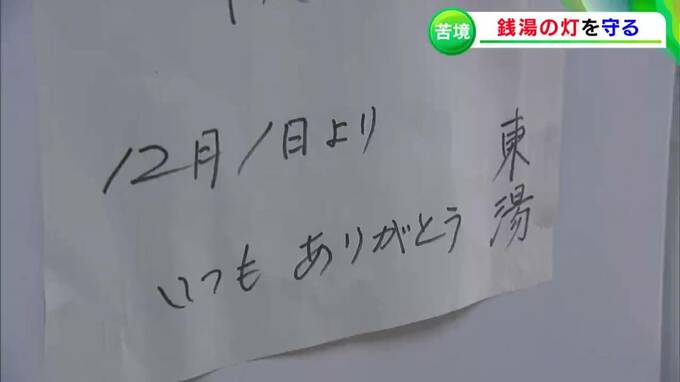 苦境
銭湯の灯を守る
12月1日より
いつも ありがとう
東湯